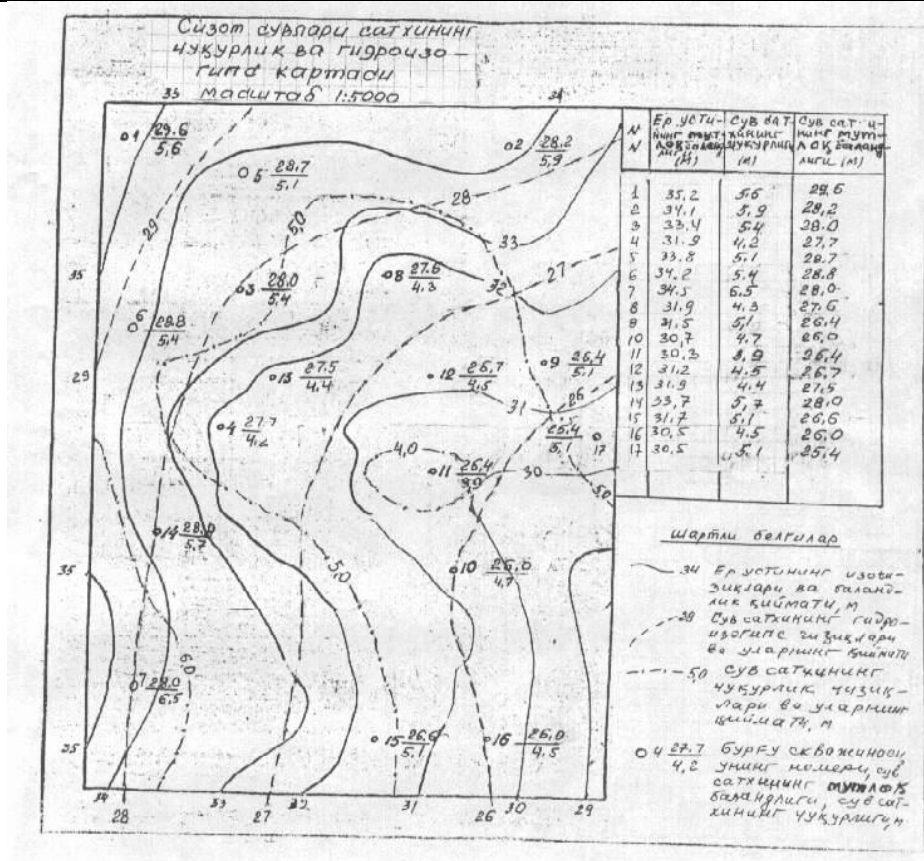 Сизот сувлари сатхининг
чуқурлик ва гидроизо-
гипс картаси
масштаб 1:5000
35 34
1 29.6
5,6
2 28.2
5,9
5 28.7
5.1
29 5,0 28 33
35
3 28.0
5.4
8 27.6
4.3
32 27
6 28.8
5,4
29
13 27.5
4.4
12 26,7
4,5
9 26,4
5.1
4 27.7
4,2
31 26
26.4
5,1
17
4,0
11 26,4
3,9
30 5,0
14 28,0
5.7
35
10 26,0
4.7
5,0
6,0
7 28.0
6,5
35
15 26.6
5,1
16 26,0
4,5
34 33 32 31 30 29
28 27 26
N
N
Ер усти-
нинг мут-
лоқ баланд-
лиги (м)
Сув сат-
хининг
чуқурлиги
(м)
Сув сат-и-
нинг мут-
лоқ баланд-
лиги (м)
1 35,2 5,6 29,6
2 34,1 5,9 28,2
3 33,4 5,4 28.0
4 31.9 4,2 27,7
5 33.8 5,1 28.7
6 34.2 5,4 28.8
7 34.5 6.5 28,0
8 31,9 4,3 27.6
9 31,5 5,1 26.4
10 30,7 4,7 26,0
11 30,3 3,9 26,4
12 31,2 4,5 26,7
13 31.9 4.4 27,5
14 33,7 5,7 28,0
15 31,7 5,1 26,6
16 30,5 4,5 26.0
17 30,5 5,1 25,4
Шартли белгилар
34 Ер устининг изочи-
зиқлари ва баланд-
лик қиймати, м
28 Сув сатхининг гидро-
изогипс чизиқлари
ва уларнинг қиймати
5,0 Сув сатхининг
чуқурлик чизиқ-
лари ва уларнинг
қиймати, м
4 27.7
4,2
бурғу скважинаси
унинг номери, сув
сатхининг мутлоқ
баландлиги, сув сат-
хининг чуқурлиги, м